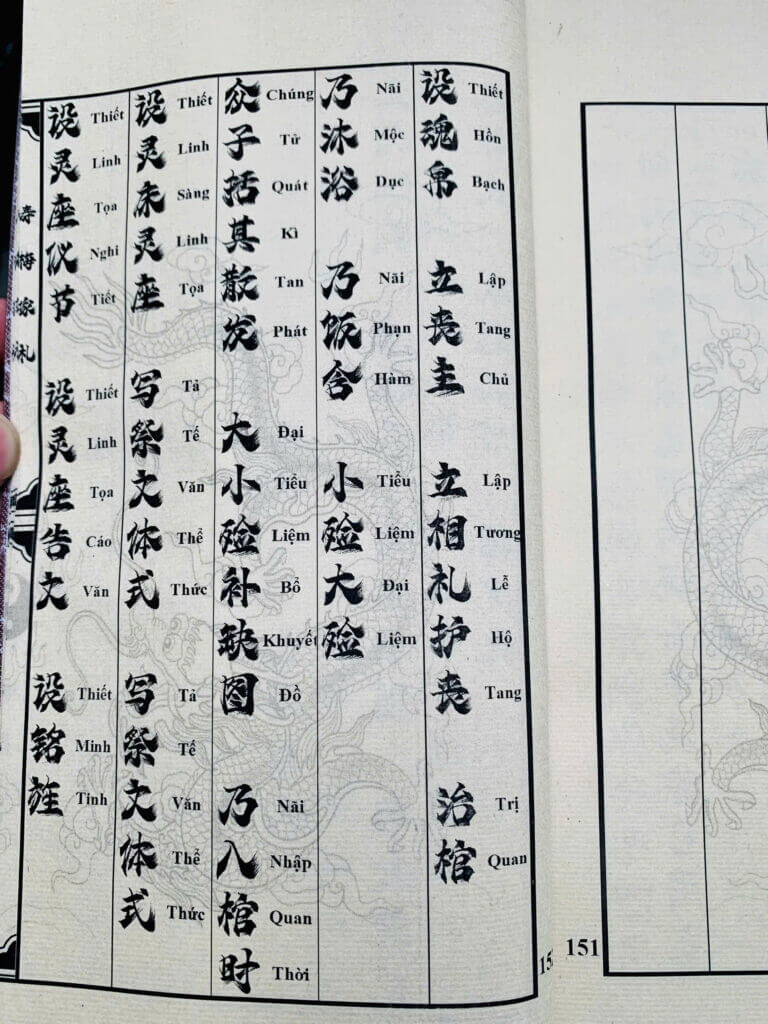 设魂帛
Thiết Hồn Bạch
立丧主
Lập Tang Chủ
立相礼护丧
Lập Tương Lễ Hộ Tang
治棺
Trị Quan
乃沐浴
Nãi Mộc Dục
乃饭含
Nãi Phạn Hàm
小殓大殓
Tiểu Liệm Đại Liệm
众子括其散发
Chúng Tử Quát Kì Tan Phát
大小殓补缺图
Đại Tiểu Liệm Bổ Khuyết Đồ
乃入棺时
Nãi Nhập Quan Thời
设灵床灵座
Thiết Linh Sàng Linh Tọa
写祭文体式
Tả Tế Văn Thể Thức
写祭文体式
Tả Tế Văn Thể Thức
设灵座仪节
Thiết Linh Tọa Nghi Tiết
设灵座告文
Thiết Linh Tọa Cáo Văn
设铭旌
Thiết Minh Tinh
151